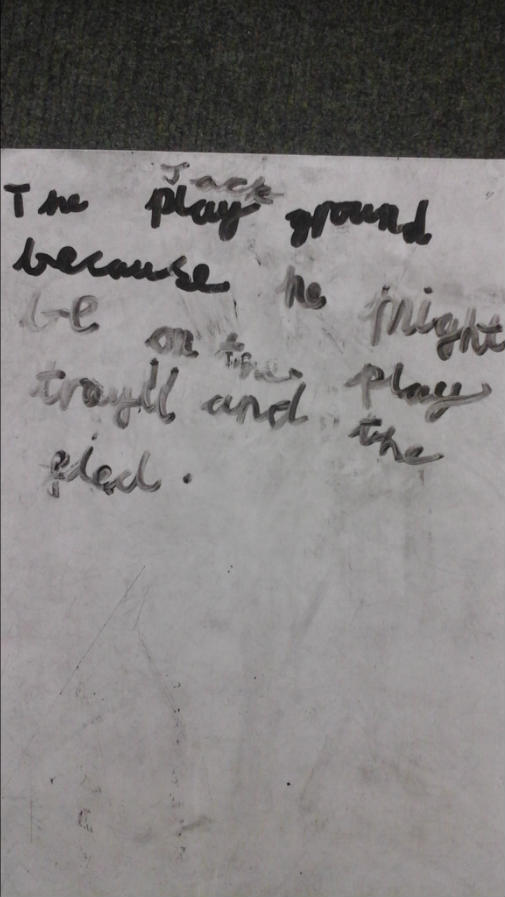 Jack
The play ground
because he might
be on the play
trayll and the
glad.